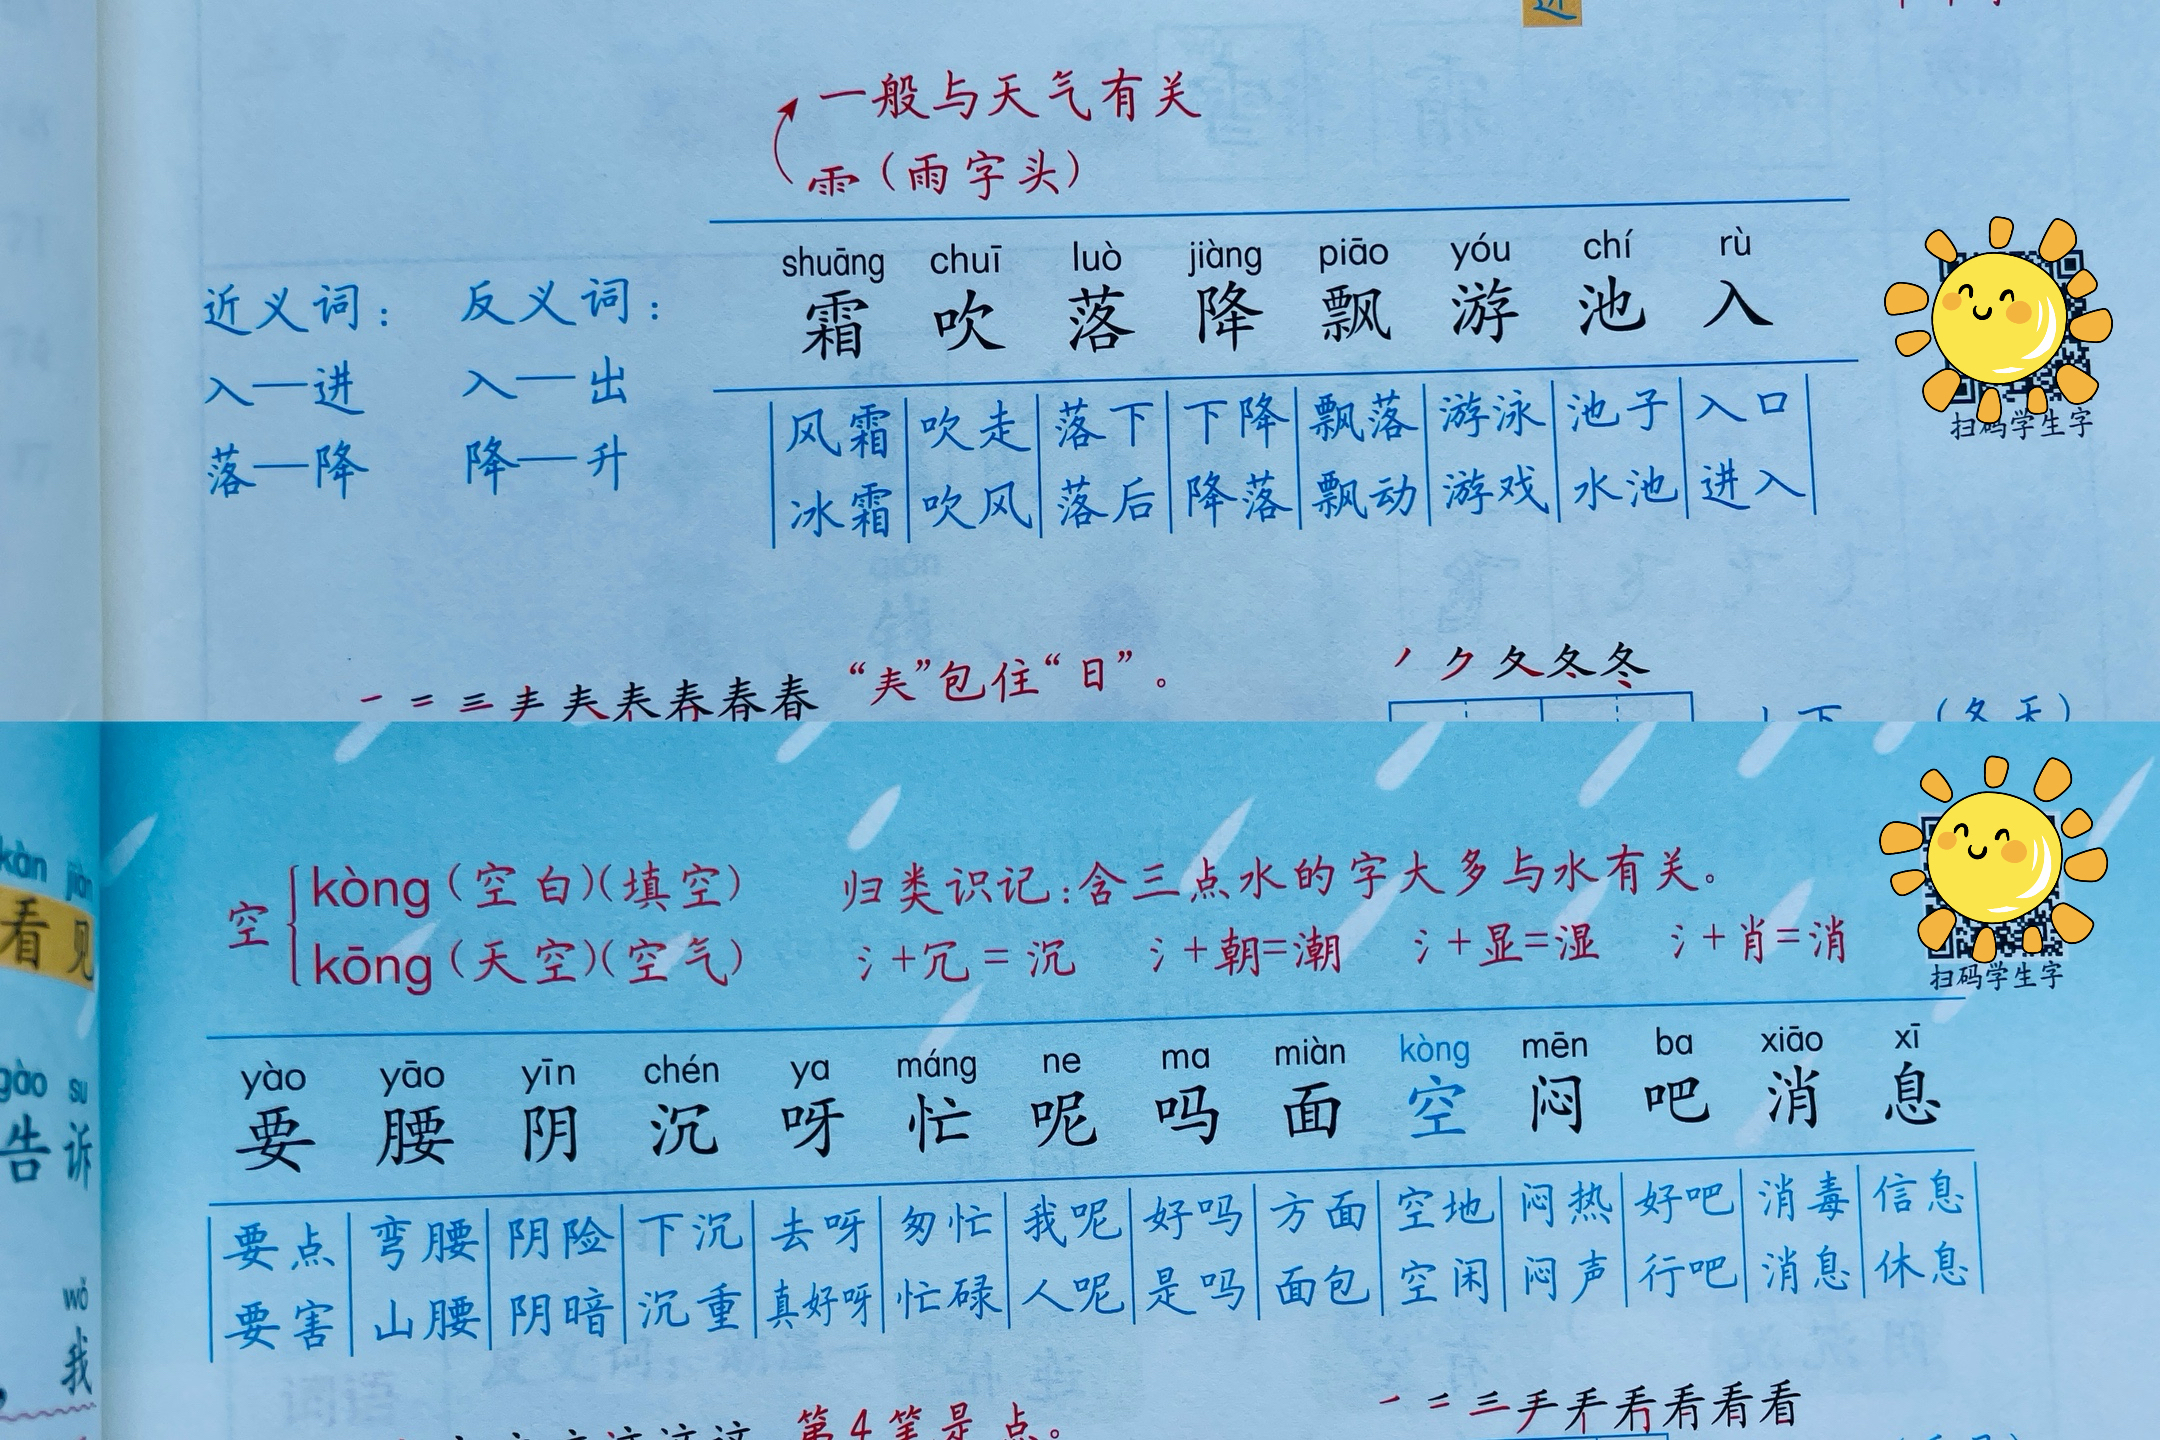 一般与天气有关
⻗（雨字头）
近义词： 反义词：
入——进 入——出
落——降 降——升
shuāng chuī luò jiàng piāo yóu chí rù
霜 吹 落 降 飘 游 池 入
风霜 吹走 落下 下降 飘落 游泳 池子 入口
冰霜 吹风 落后 降落 飘动 游戏 水池 进入
扫码学生字
“𡗗”包住“日”。
（冬天）
空 kòng（空白）（填空）
kōng（天空）（空气）
归类识记：含三点水的字大多与水有关。
氵+冗=沉 氵+朝=潮 氵+显=湿 氵+肖=消
扫码学生字
yào yāo yīn chén ya máng ne ma miàn kòng mēn ba xiāo xī
要 腰 阴 沉 呀 忙 呢 吗 面 空 闷 吧 消 息
要点 弯腰 阴险 下沉 去呀 匆忙 我呢 好吗 方面 空地 闷热 好吧 消毒 信息
要害 山腰 阴暗 沉重 真好呀 忙碌 人呢 是吗 面包 空闲 闷声 行吧 消息 休息
kàn jiàn
看见
gào su
告诉
wǒ
我
第4笔是点。